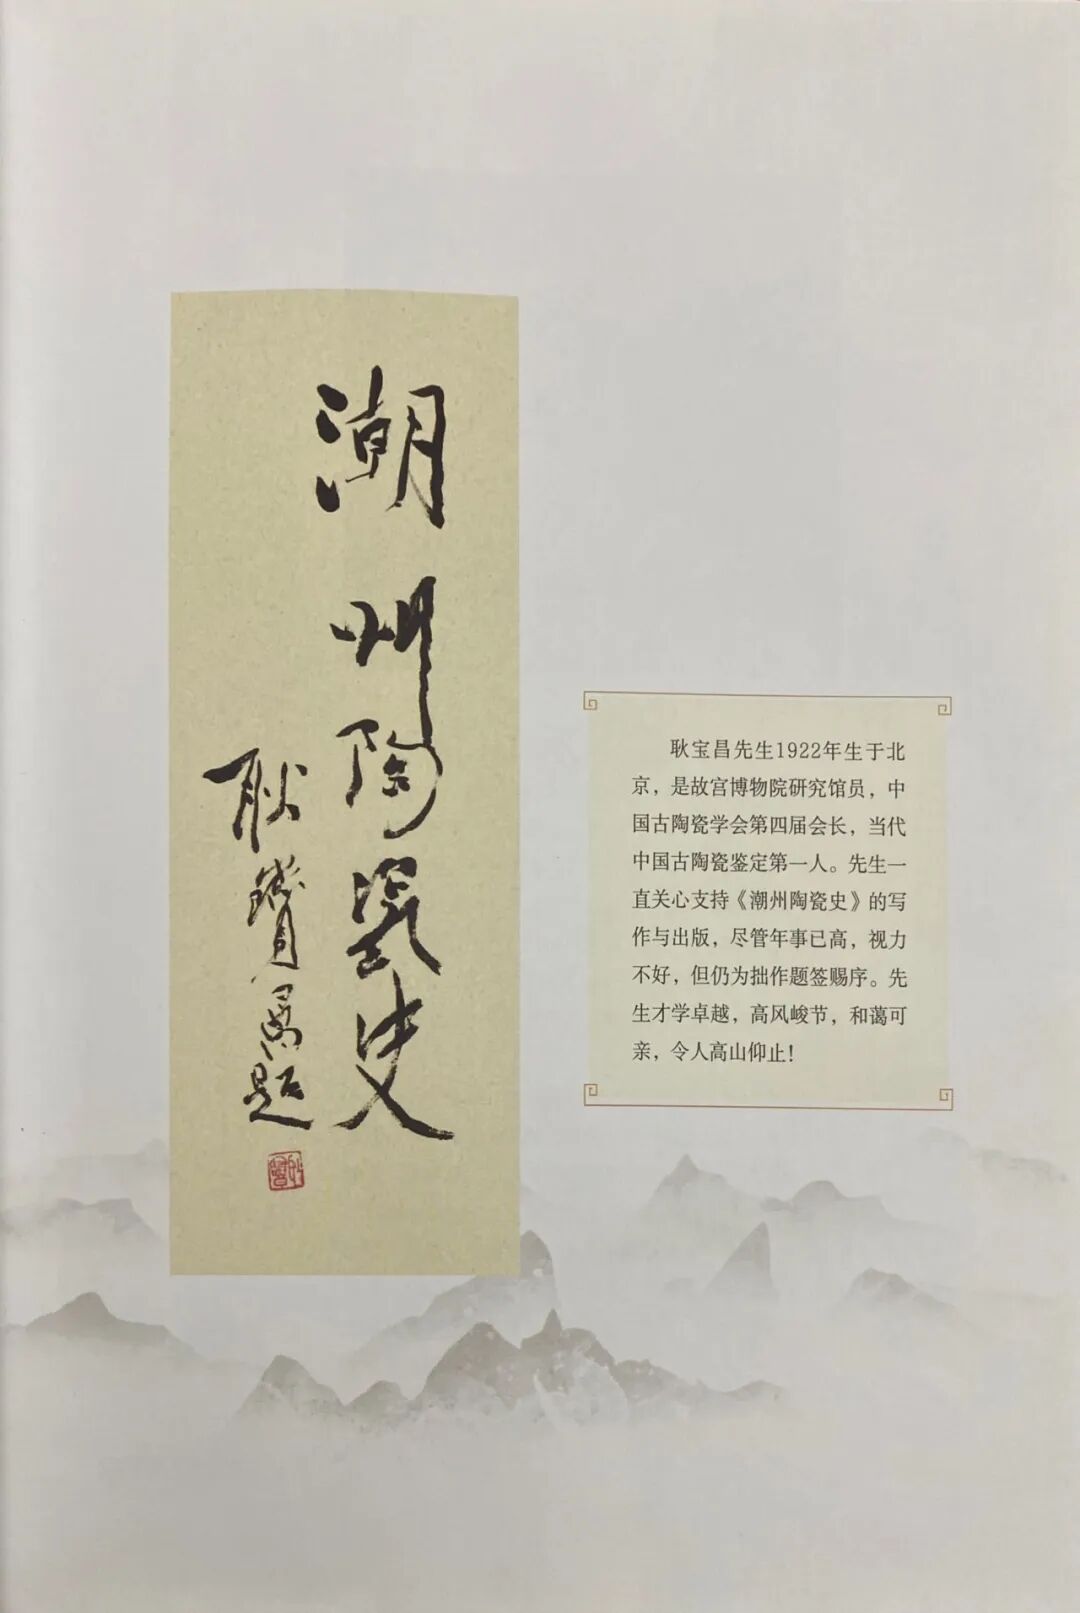 潮州陶瓷史
耿寶昌題
耿宝昌先生1922年生于北
京，是故宫博物院研究馆员，中
国古陶瓷学会第四届会长，当代
中国古陶瓷鉴定第一人。先生一
直关心支持《潮州陶瓷史》的写
作与出版，尽管年事已高，视力
不好，但仍为拙作题签赐序。先
生才学卓越，高风峻节，和蔼可
亲，令人高山仰止！